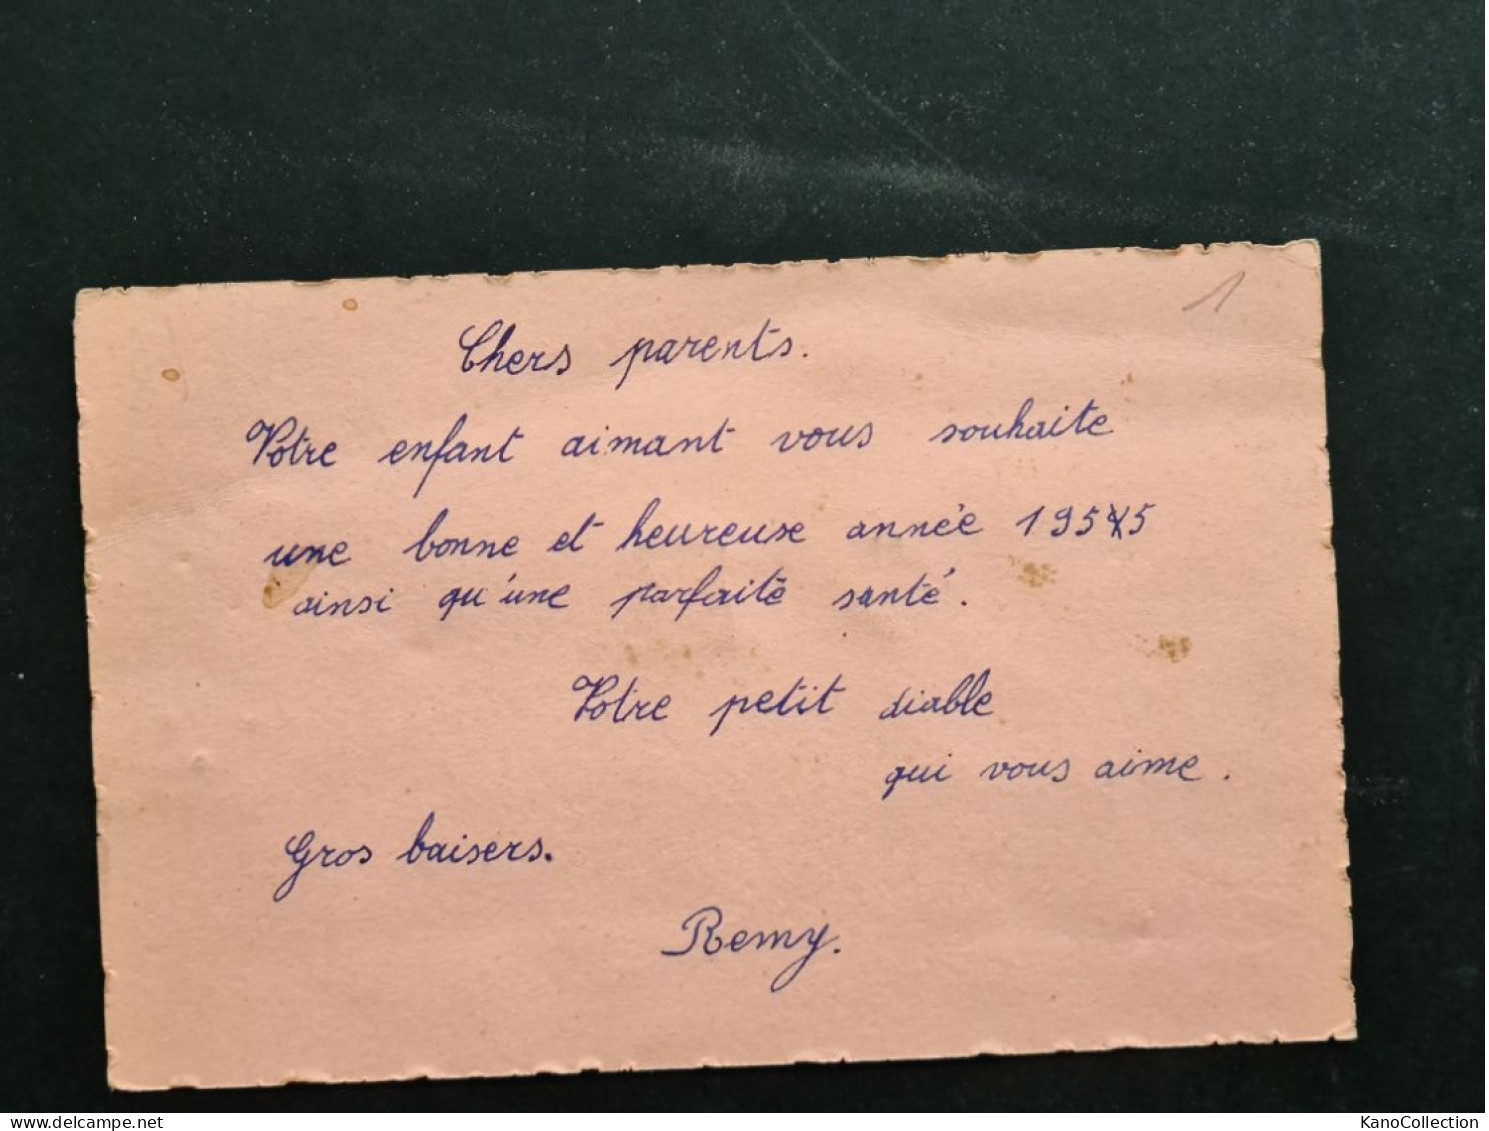 1
Chers parents.
Votre enfant aimant vous souhaite
une bonne et heureuse année 1955
ainsi qu'une parfaite santé.
Votre petit diable
qui vous aime.
Gros baisers.
Remy.
delcampe.net
KanoCollection